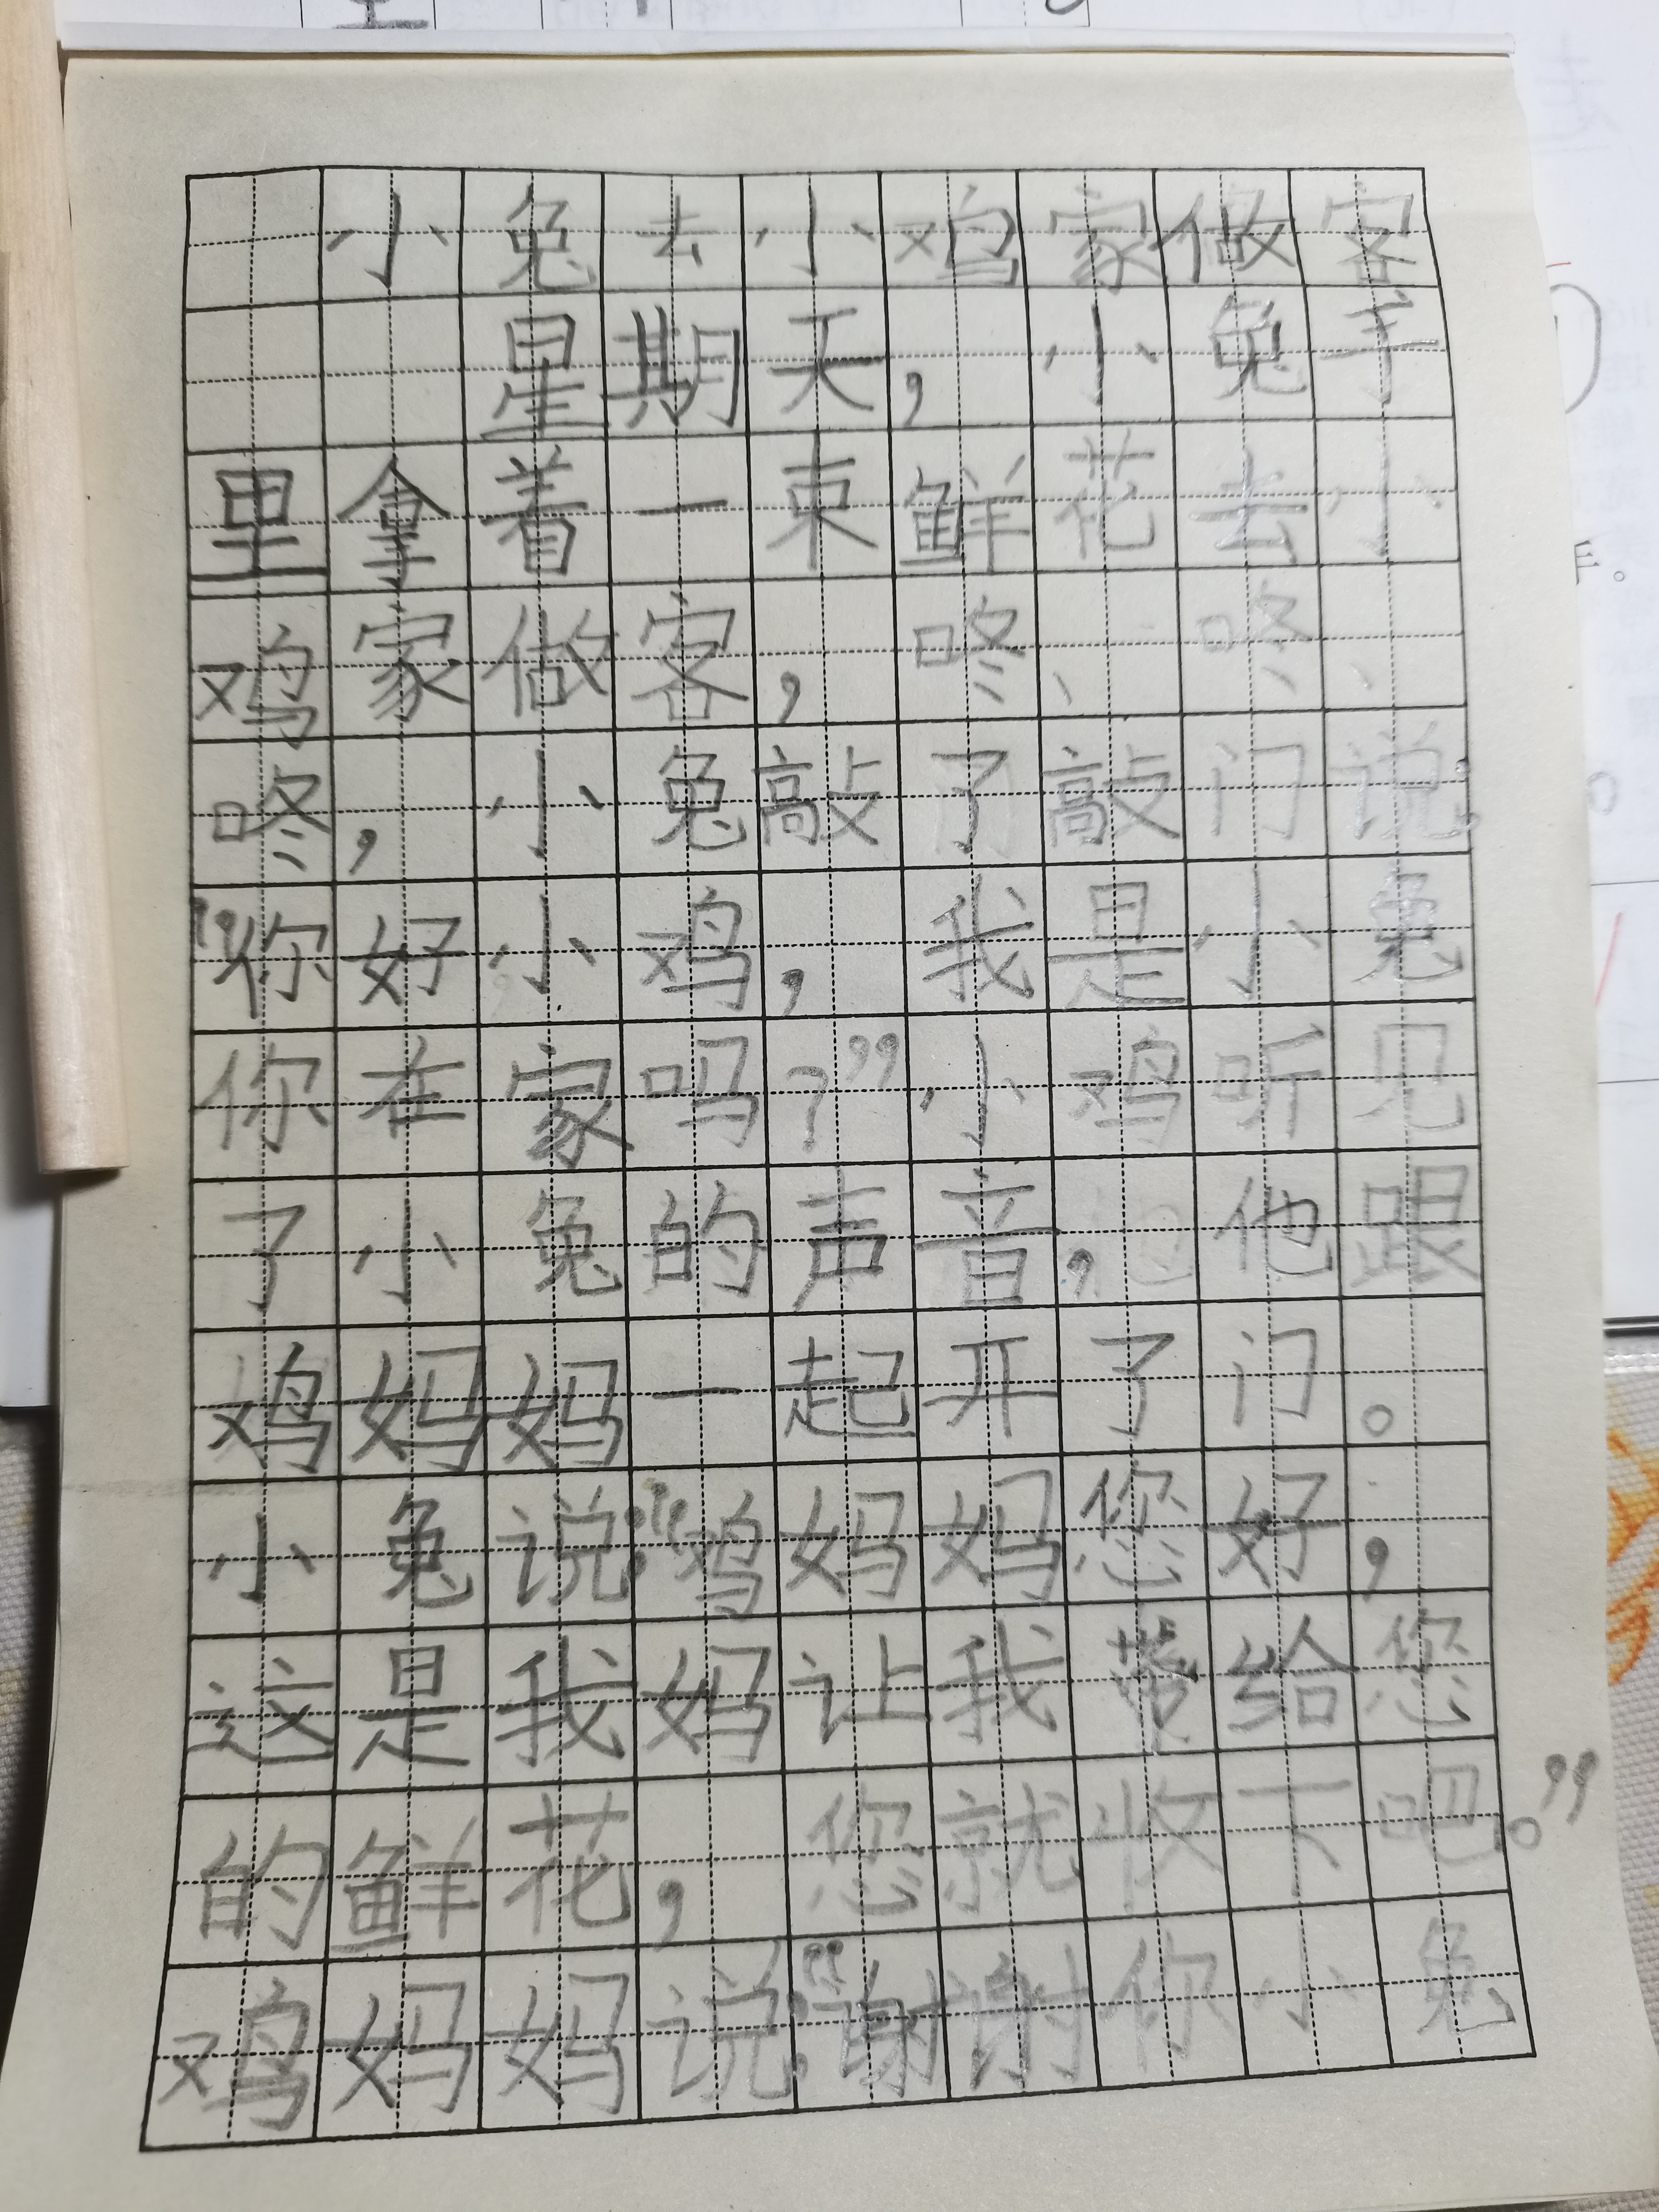 小兔去小鸡家做客
星期天，小兔手
里拿着一束鲜花去小
鸡家做客，咚、咚、
咚，小兔敲了敲门说：
“你好小鸡，我是小兔
你在家吗？”小鸡听见
了小兔的声音，他跟
鸡妈妈一起开了门。
小兔说：“鸡妈妈您好，
这是我妈让我带给您
的鲜花，您就收下吧。”
鸡妈妈说：“谢谢你小兔